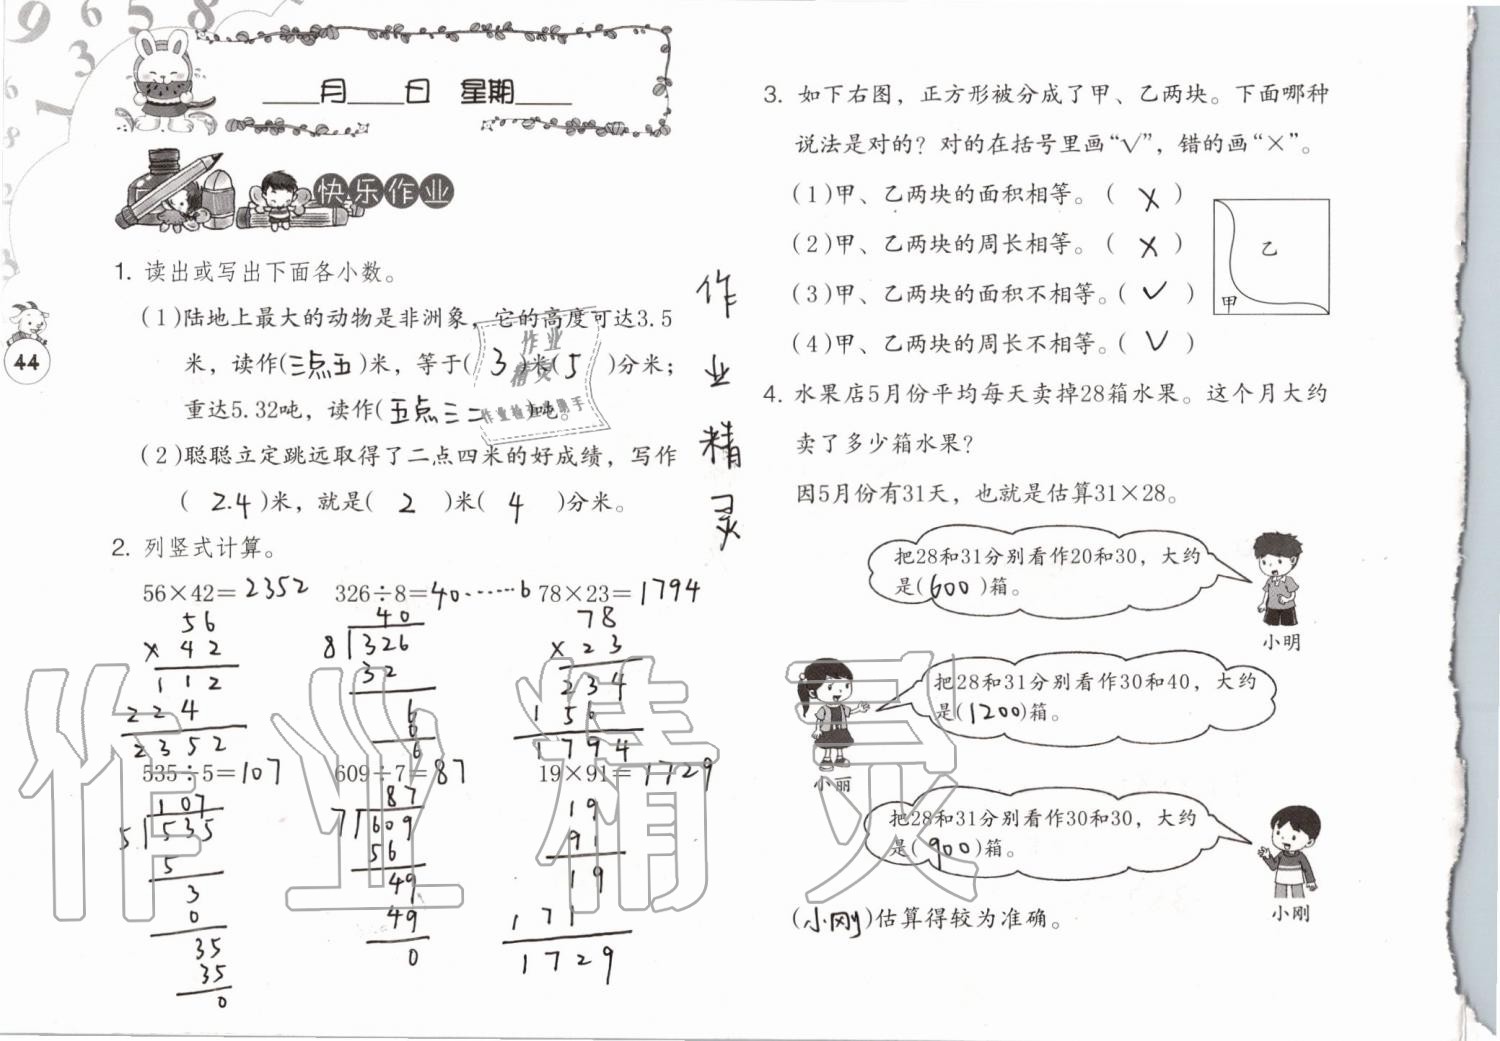 ____月____日 星期____
快乐作业
1. 读出或写出下面各小数。
(1)陆地上最大的动物是非洲象，它的高度可达3.5
米，读作(三点五)米，等于(3)米(5)分米；
重达5.32吨，读作(五点三二)吨。
(2)聪聪立定跳远取得了二点四米的好成绩，写作
(2.4)米，就是(2)米(4)分米。
2. 列竖式计算。
56×42=2352 326÷8=40……6 78×23=1794
56
× 42
112
224
2352
40
8 326
32
6
0
6
78
× 23
234
156
1794
535÷5=107 609÷7=87 19×91=1729
107
5 535
5
3
0
35
35
0
87
7 609
56
49
49
0
19
91
19
171
1729
44
作业精灵
作业
精灵
作业精灵
3. 如下右图，正方形被分成了甲、乙两块。下面哪种
说法是对的？对的在括号里画“√”，错的画“×”。
(1)甲、乙两块的面积相等。(×)
(2)甲、乙两块的周长相等。(×)
(3)甲、乙两块的面积不相等。(√)
(4)甲、乙两块的周长不相等。(√)
乙
甲
4. 水果店5月份平均每天卖掉28箱水果。这个月大约
卖了多少箱水果？
因5月份有31天，也就是估算31×28。
把28和31分别看作20和30，大约
是(600)箱。
小明
把28和31分别看作30和40，大约
是(1200)箱。
小丽
把28和31分别看作30和30，大约
是(900)箱。
小刚
(小刚)估算得较为准确。